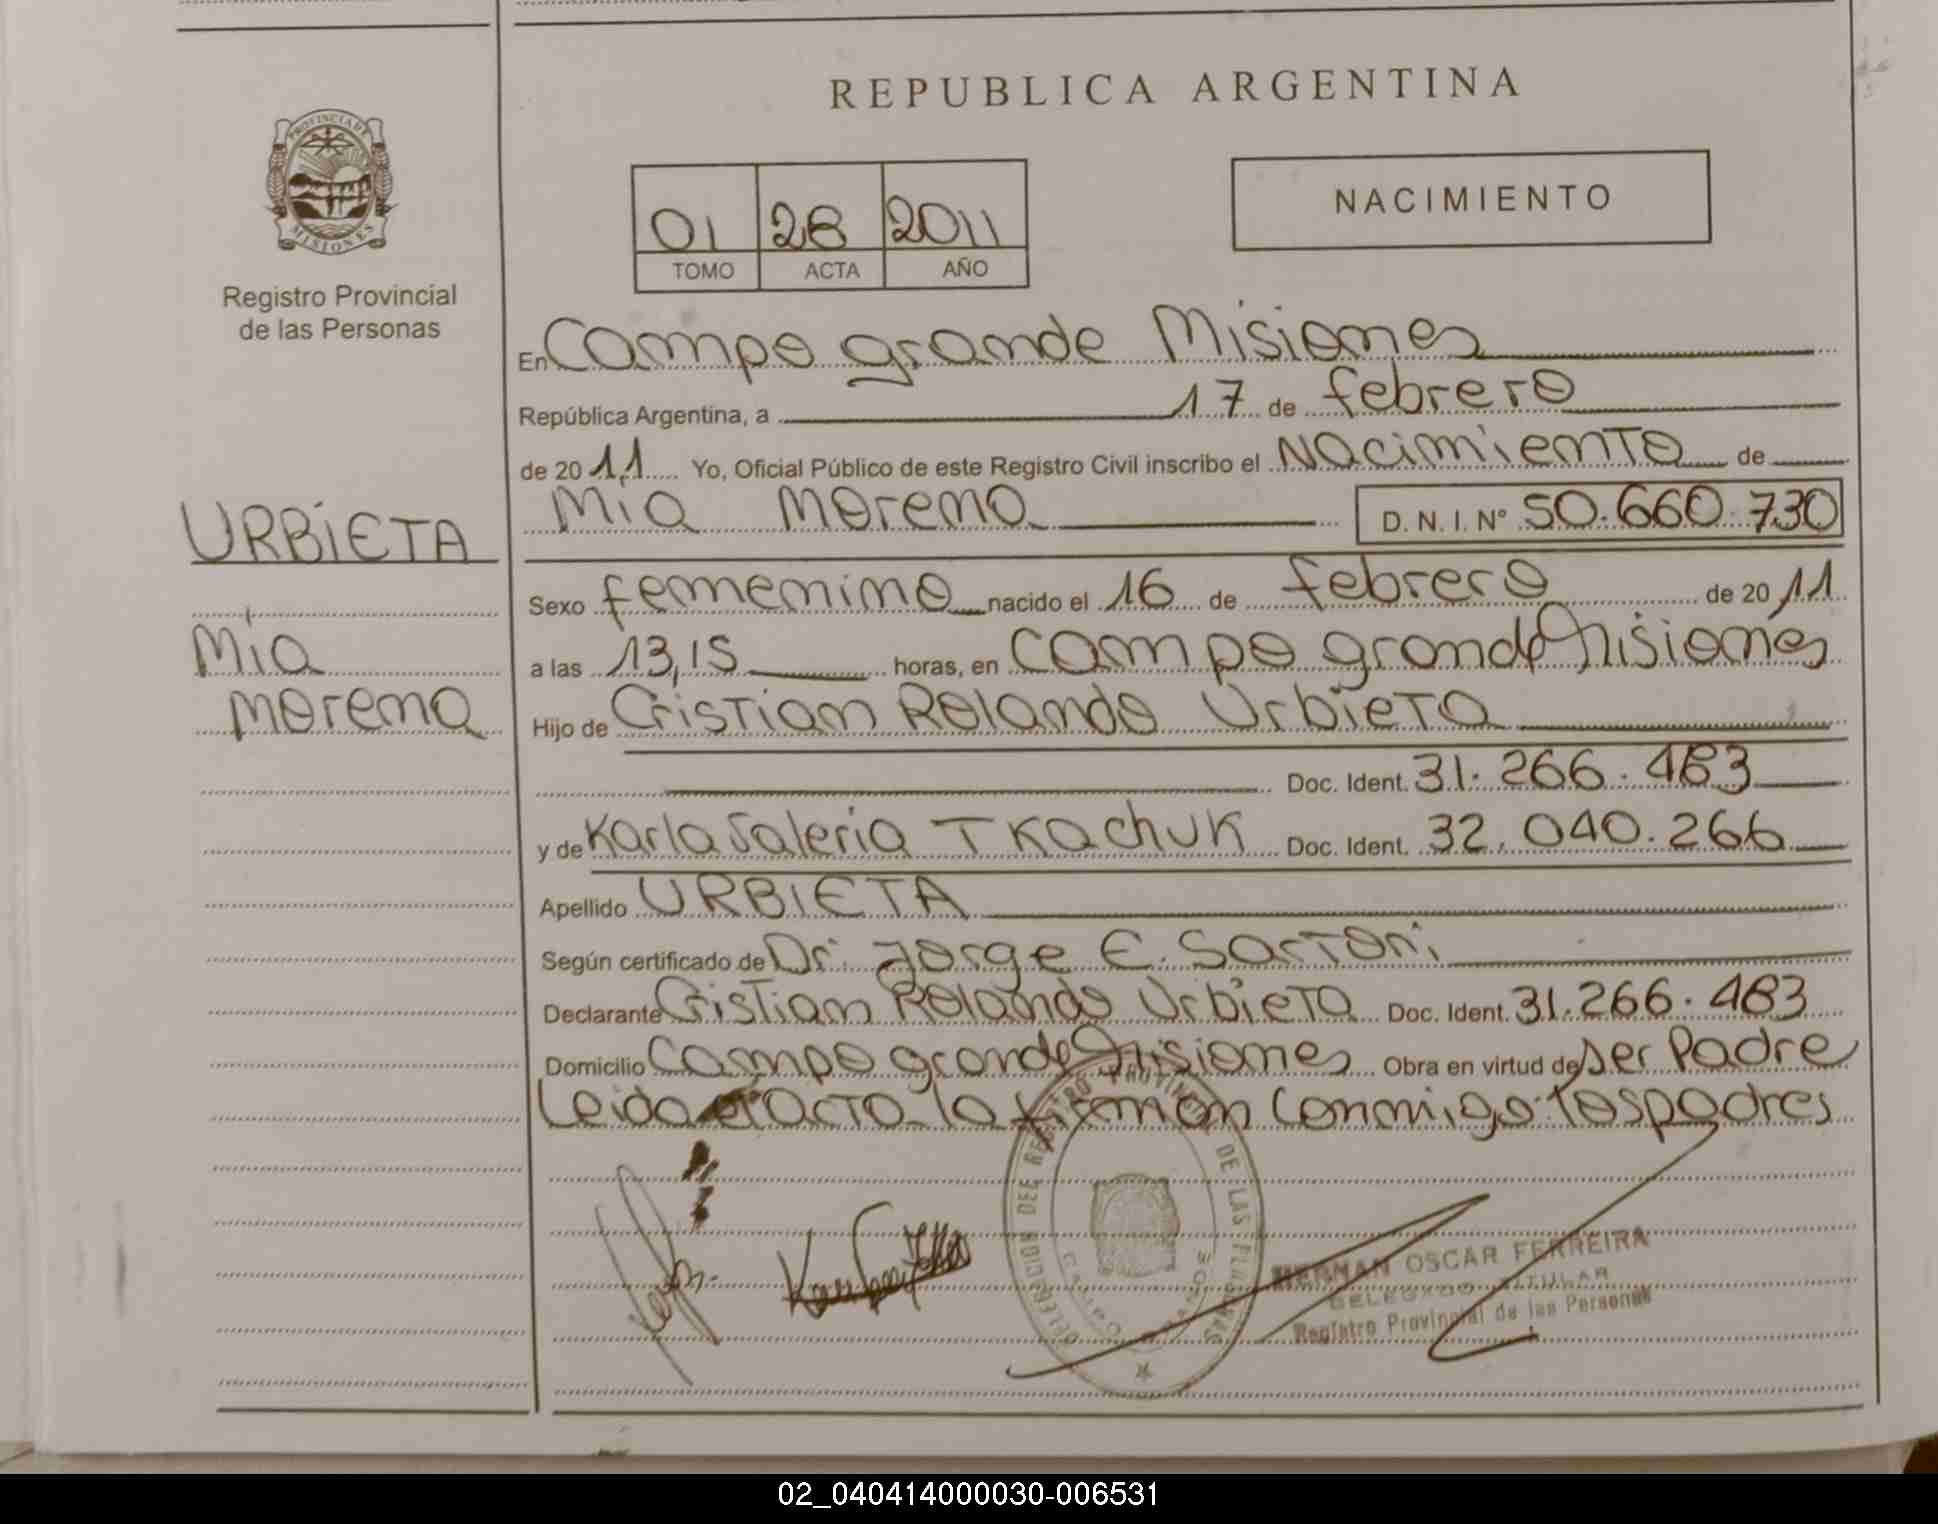 REPUBLICA ARGENTINA
PROVINCIA DE
MISIONES
Registro Provincial
de las Personas
01 28 2011
TOMO ACTA AÑO
NACIMIENTO
En Campo grande Misiones
República Argentina, a 17 de febrero
de 2011 Yo, Oficial Público de este Registro Civil inscribo el Nacimiento de
Mia Morena D. N. I. Nº 50.660.730
URBIETA
Mia
Morena
Sexo femenino nacido el 16 de febrero de 2011
a las 13,15 horas, en Campo grande Misiones
Hijo de Cristian Rolando Urbieta
Doc. Ident. 31.266.483
y de Karla Valeria Tkachuk Doc. Ident. 32.040.266
Apellido URBIETA
Según certificado de Dr. Jorge E. Sartori
Declarante Cristian Rolando Urbieta Doc. Ident. 31.266.483
Domicilio Campo grande Misiones Obra en virtud de ser Padre
Leida el acta la firman conmigo los padres
REGISTRO PROVINCIAL DE LAS PERSONAS
HERNAN OSCAR FERREIRA
DELEGADO TITULAR
Registro Provincial de las Personas
02_040414000030-006531